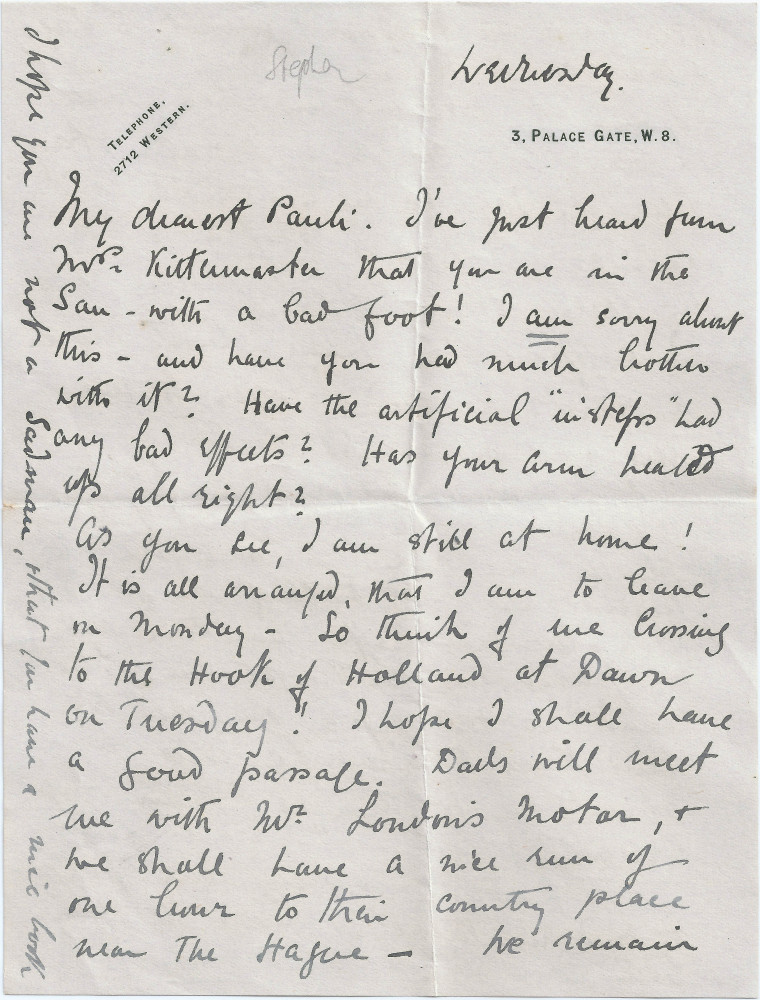 Stephen
Wednesday.
TELEPHONE,
2712 WESTERN.
3, PALACE GATE, W.8.
My dearest Pauli. I've just heard from
Mrs. Kittermaster that you are in the
San - with a bad foot! I am sorry about
this - and have you had much bother
with it? Have the artificial "insteps" had
any bad effects? Has your arm healed
up all right?
As you see, I am still at home!
It is all arranged, that I am to leave
on Monday - So think of me Crossing
to the Hook of Holland at Dawn
on Tuesday! I hope I shall have
a good passage. Dads will meet
me with Mr. London's Motor, +
we shall have a nice run of
one hour to their country place
near The Hague - We remain
I hope you are not a Sadman, & that you have a nice book